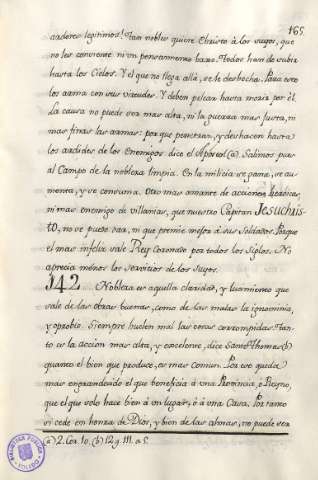 165
ardores legitimos! Tan nobles quiere Christo à los suyos, que
no les consiente ni un pensamiento baxo. Todos han de subir
hasta los Cielos. Y el que no llega allà, se le desbocha. Para esto
los arma con sus virtudes. Y deben pelear hasta morir por él.
La causa no puede ser mas alta, ni la guerra mas justa, ni
mas finas las armas: porque penetran, y deshacen hasta
los ardides de los Enemigos dice el Apostol (a). Salimos pues
al Campo de la nobleza limpia. En la milicia se gana, se au-
menta, y se consuma. Otro mas amante de acciones heroicas,
ni mas enemigo de villanias, que nuestro Capitan Jesuchris-
to, no se puede dar, ni que premie mejor à sus Soldados. Porque
el mas infeliz sale Rey Coronado por todos los Siglos. No
aprecia menos los servicios de los suyos.
142 Nobleza es aquella claridad, y lucimiento que
sale de las obras buenas, como de las malas la ignominia,
y oprobio. Siempre huelen mal las cosas corrompidas. Tan-
to es la acción mas alta, y excelente, dice Santo Thomas (b)
quanto el bien que produce, es mas comun. Por eso queda
mas engrandecido el que beneficia à una Provincia, ò Reyno,
que el que solo hace bien à un lugar, ò à una Casa. Por tanto
si cede en honra de Dios, y bien de las almas, no puede ser
(a) 2. Cor. 10. (b) 12 q. 111. a. 5.
BIBLIOTECA PUBLICA
TOLEDO